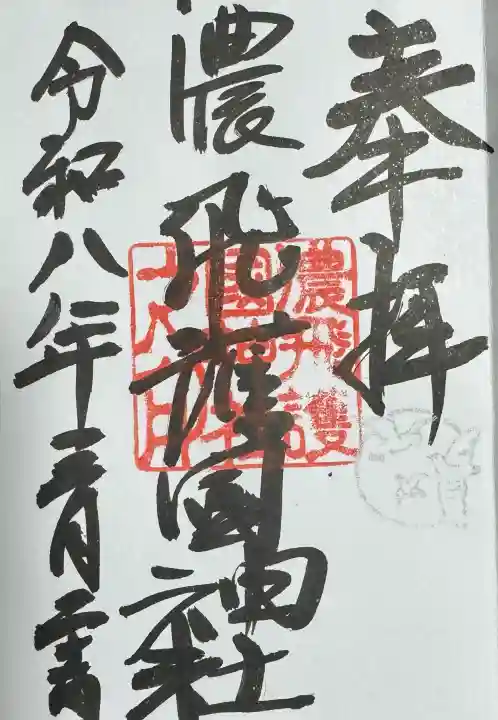 奉拝
濃飛護國神社
濃飛護
國神社
令和八年